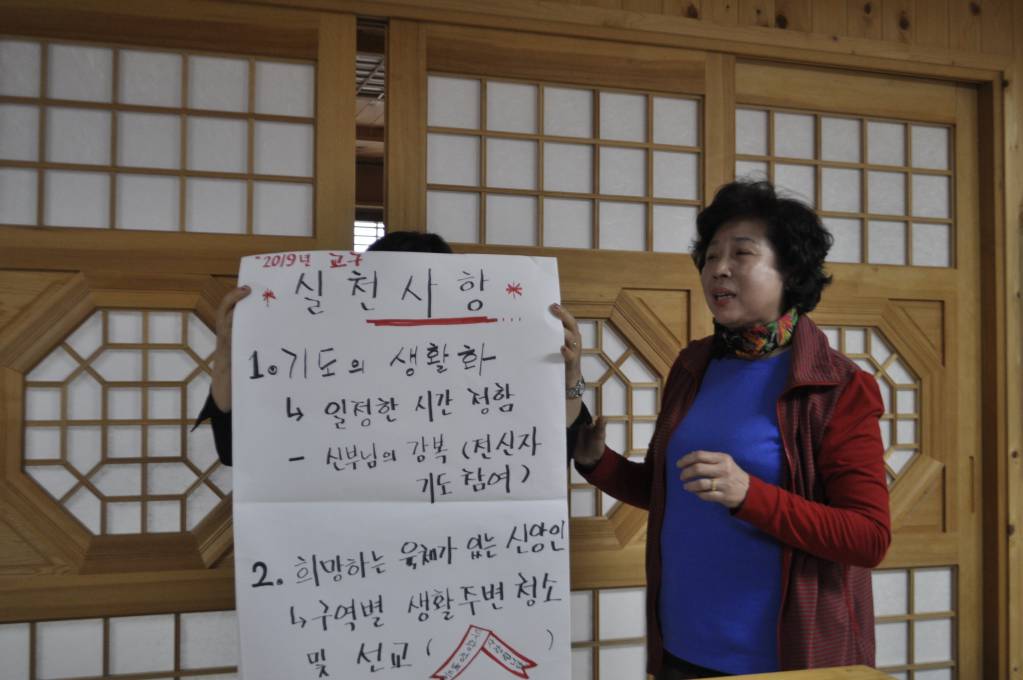 2019년
* 실천사항 * ...
1. 기도의 생활화
↳ 일정한 시간 정함
- 신부님의 강복 (전신자
기도 참여)
2. 희망하는 육체가 있는 신앙인
↳ 구역별 생활주변 청소
및 선교 ( )